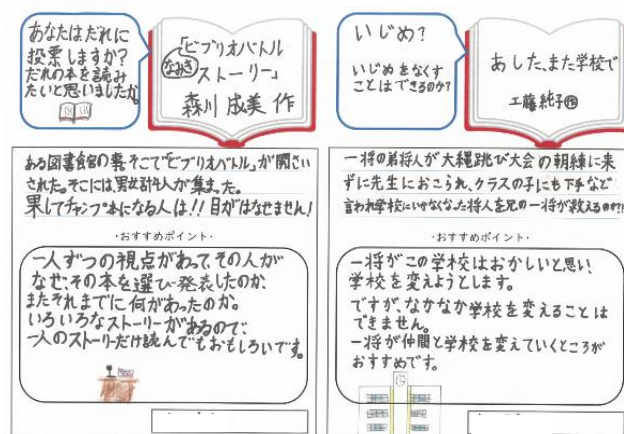 あなたはだれに
投票しますか?
だれの本を読み
たいと思いましたか。
「ビブリオバトル
ストーリー」
森川成美 作
ある図書館の事、そこで"ビブリオバトル"が開さい
された。そこには、男女計4人が集まった。
果してチャンプ本になる人は!!目がはなせません!
・おすすめポイント・
一人ずつの視点があって、その人が
なぜ、その本を選び発表したのか、
またそれまでに何があったのか。
いろいろなストーリーがあるので、
一人のストーリーだけ読んでもおもしろいです。
いじめ?
いじめをなくす
ことはできるのか?
あした、また学校で
工藤純子作
一将の弟将人が大縄跳び大会の朝練に来
ずに先生におこられ、クラスの子にも下手など
言われ学校にいかなくなった将人を兄の一将が救えるのか?!
・おすすめポイント・
一将がこの学校はおかしいと思い、
学校を変えようとします。
ですが、なかなか学校を変えることは
できません。
一将が仲間と学校を変えていくところが
おすすめです。